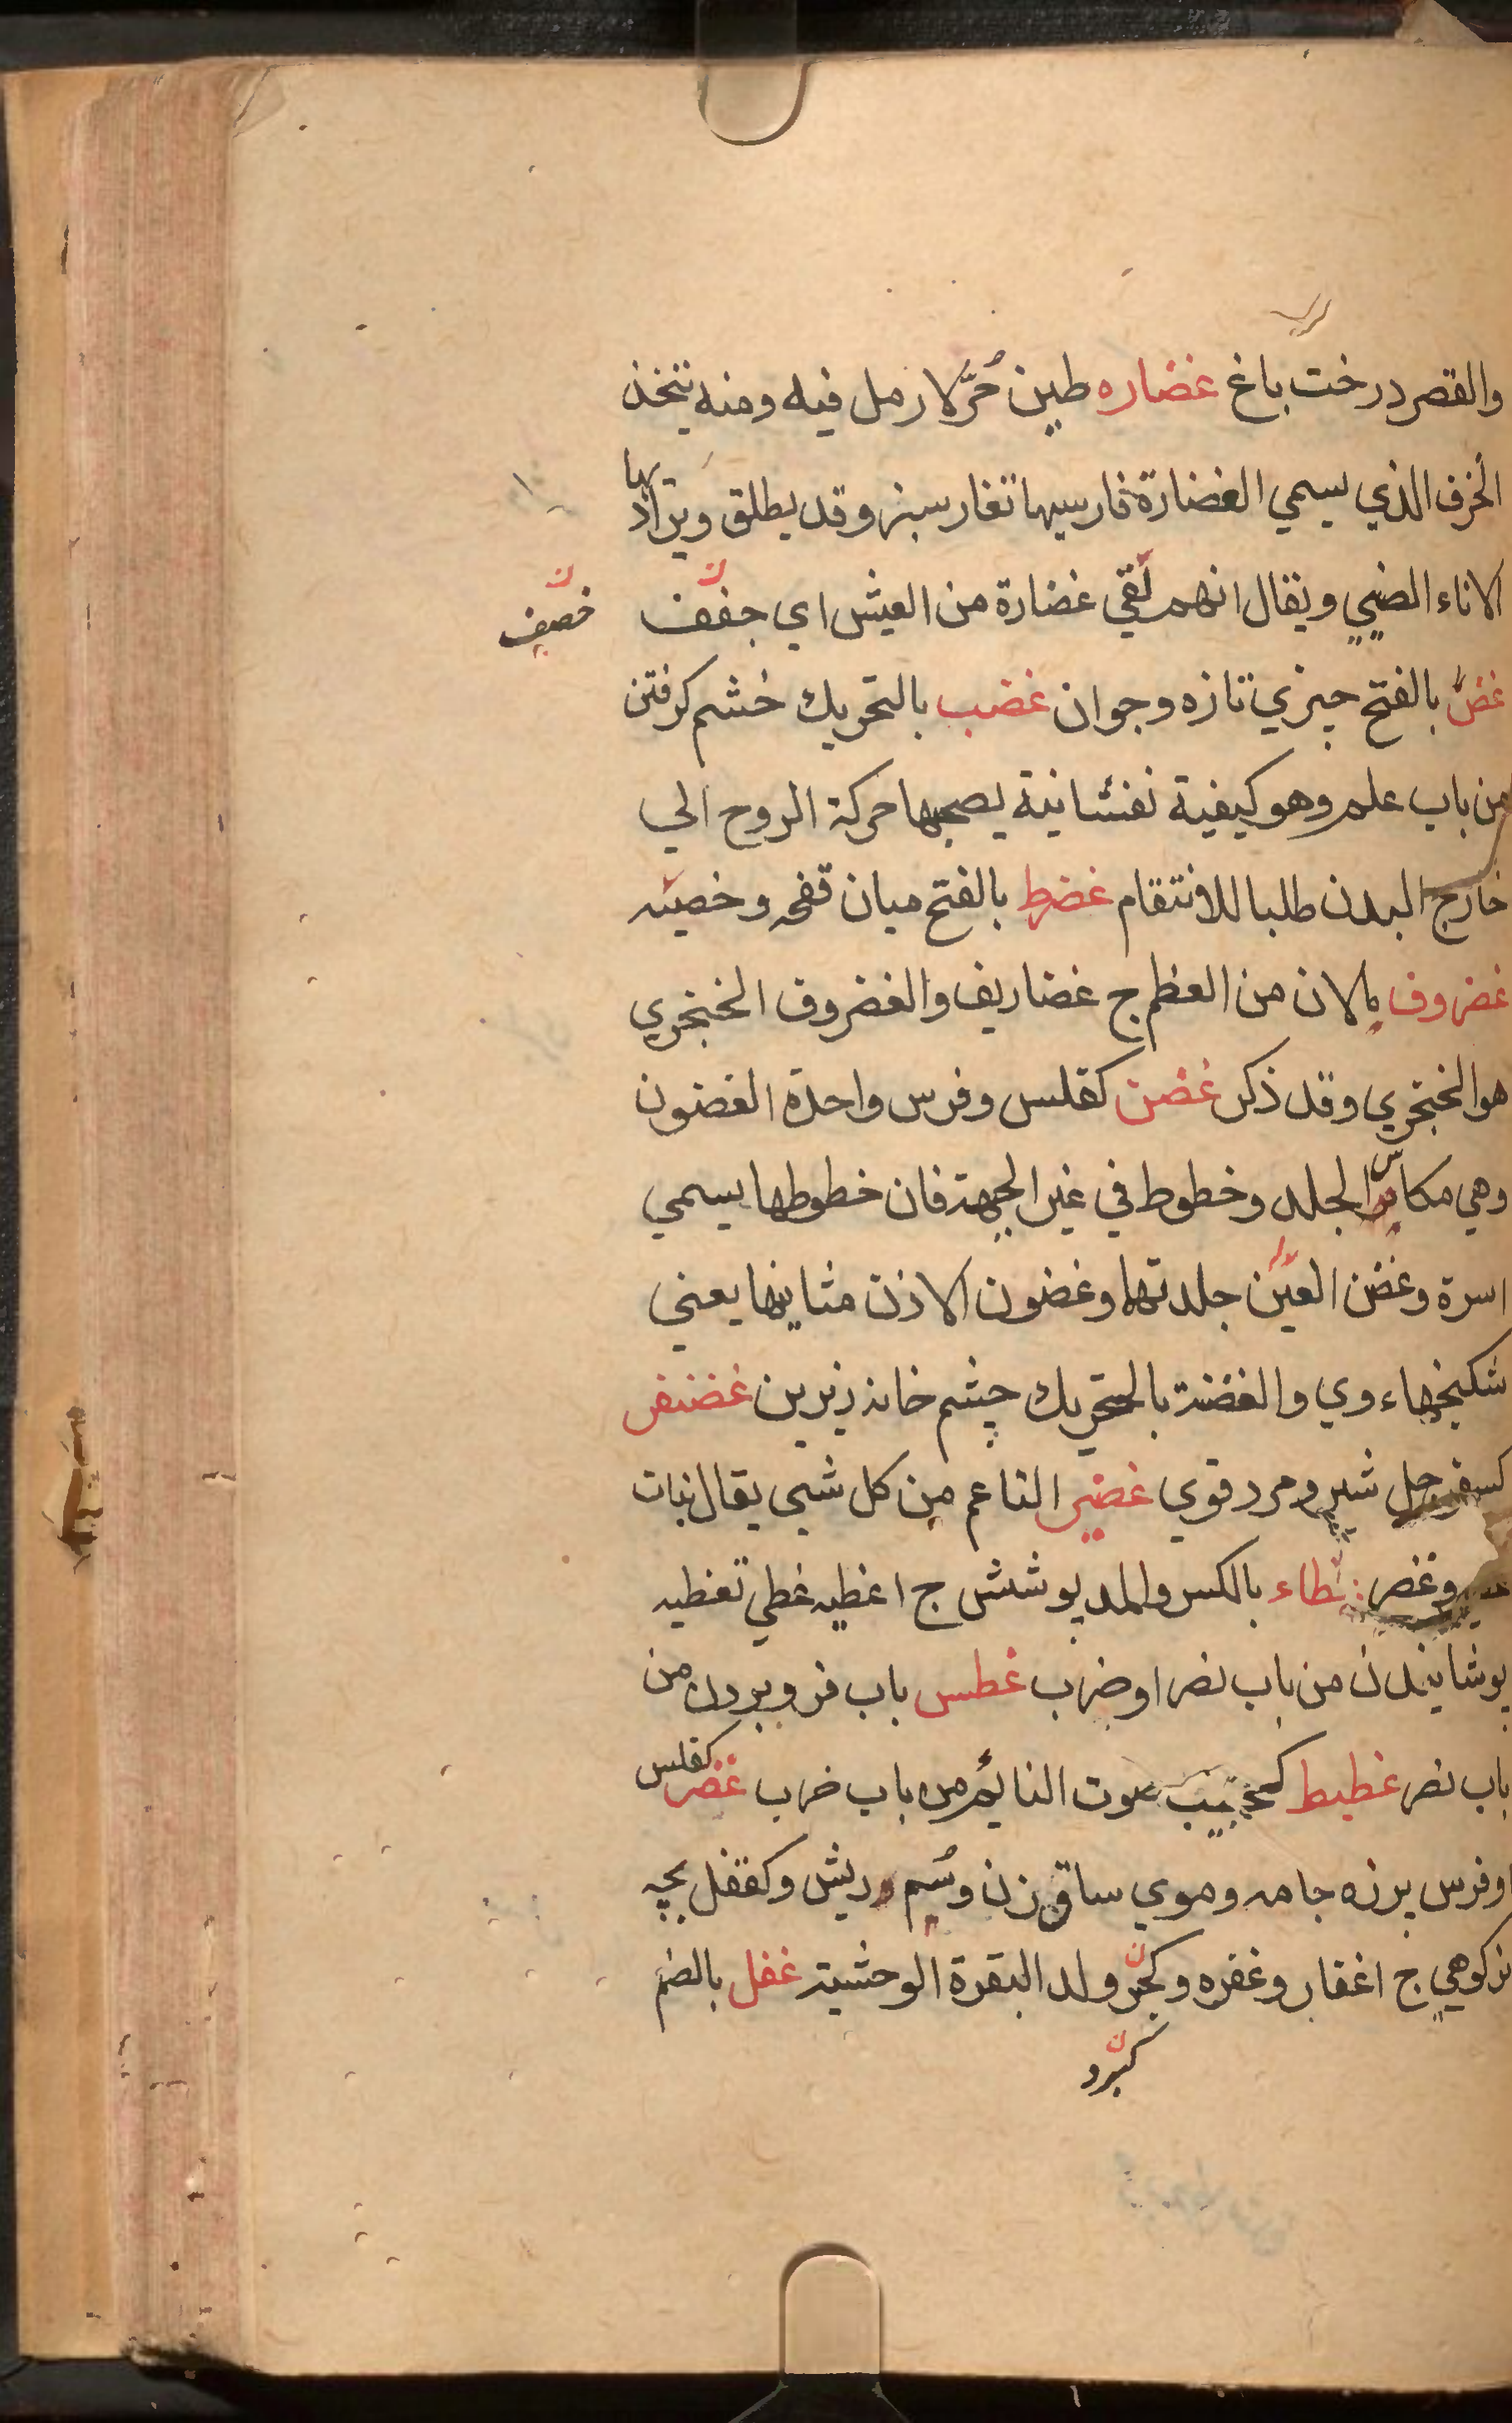 والقصر درخت باغ غضاره طين حُرّ لا رمل فيه ومنه يتخذ
الخزف الذي يسمي الغضارة فارسيها تغار سبز وقد يطلق ويراد بها
الاناء الصيني ويقال انهم لقي غضارة من العيش اي جفف
خصيف
غضّ بالفتح چيزي تازه وجوان غضب بالتحريك خشم كرفتن
من باب علم وهو كيفية نفسانية يصحبها حركة الروح الي
خارج البدن طلبا للانتقام غضرط بالفتح ميان قفحه وخصيه
غضروف مالان من العظم ج غضاريف والغضروف الخنجري
هو الخنجري وقد ذكر غضن كفلس وفرس واحدة الغضون
وهي مكاسر الجلد وخطوط في غير الجبهة فان خطوطها يسمي
اسرة وغضن العين جلدتها وغضون الاذن مثانيها يعني
شكنجهاء وي والغضنة بالتحريك چشم خانه زيرين غضنفر
كسفرجل شير ومرد قوي غضير الناعم من كل شيي يقال نبات
وغضر غطاء بالكسر والمد پوشش ج اغطيه غطي تغطيه
پوشانيدن من باب نصر اوضرب غطس باب فرو بردن من
باب نصر غطيط كحبيب صوت النائم من باب ضرب غفر كفلس
اوفرس پرزه جامه وموي ساق زن وسيم وريش وكقفل بچه
بزكوهي ج اغفار وغفره وكجرو ولد البقرة الوحشية غفل بالضم
كبرو